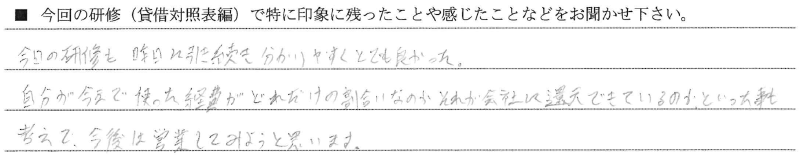 ■ 今回の研修（貸借対照表編）で特に印象に残ったことや感じたことなどをお聞かせ下さい。
今日の研修も昨日に引き続き分かりやすくとても良かった。
自分が今まで使った経費がどれだけの割合いなのか それが会社に還元できているのか、といった事も
考えて、今後は営業してみようと思います。